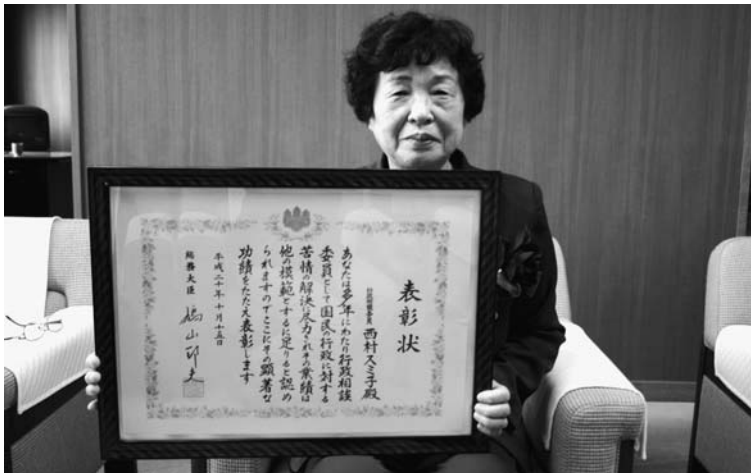 表彰状
行政相談委員 西村スミ子殿
あなたは多年にわたり行政相談
委員として国民の行政に対する
苦情の解決に尽力されその業績は
他の模範とするに足りると認め
られますのでここにその顕著な
功績をたたえ表彰します
平成二十年十月十五日
総務大臣 鳩山邦夫